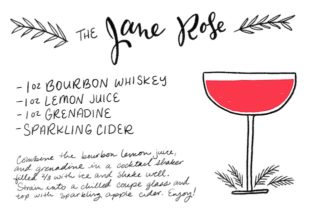 THE Jane Rose
- 1 oz BOURBON WHISKEY
- 1 oz LEMON JUICE
- 1 oz GRENADINE
- SPARKLING CIDER
Combine the bourbon lemon juice,
and grenadine in a cocktail shaker
filled 2/3 with ice and shake well.
Strain into a chilled coupe glass and
top with sparkling apple cider. Enjoy!